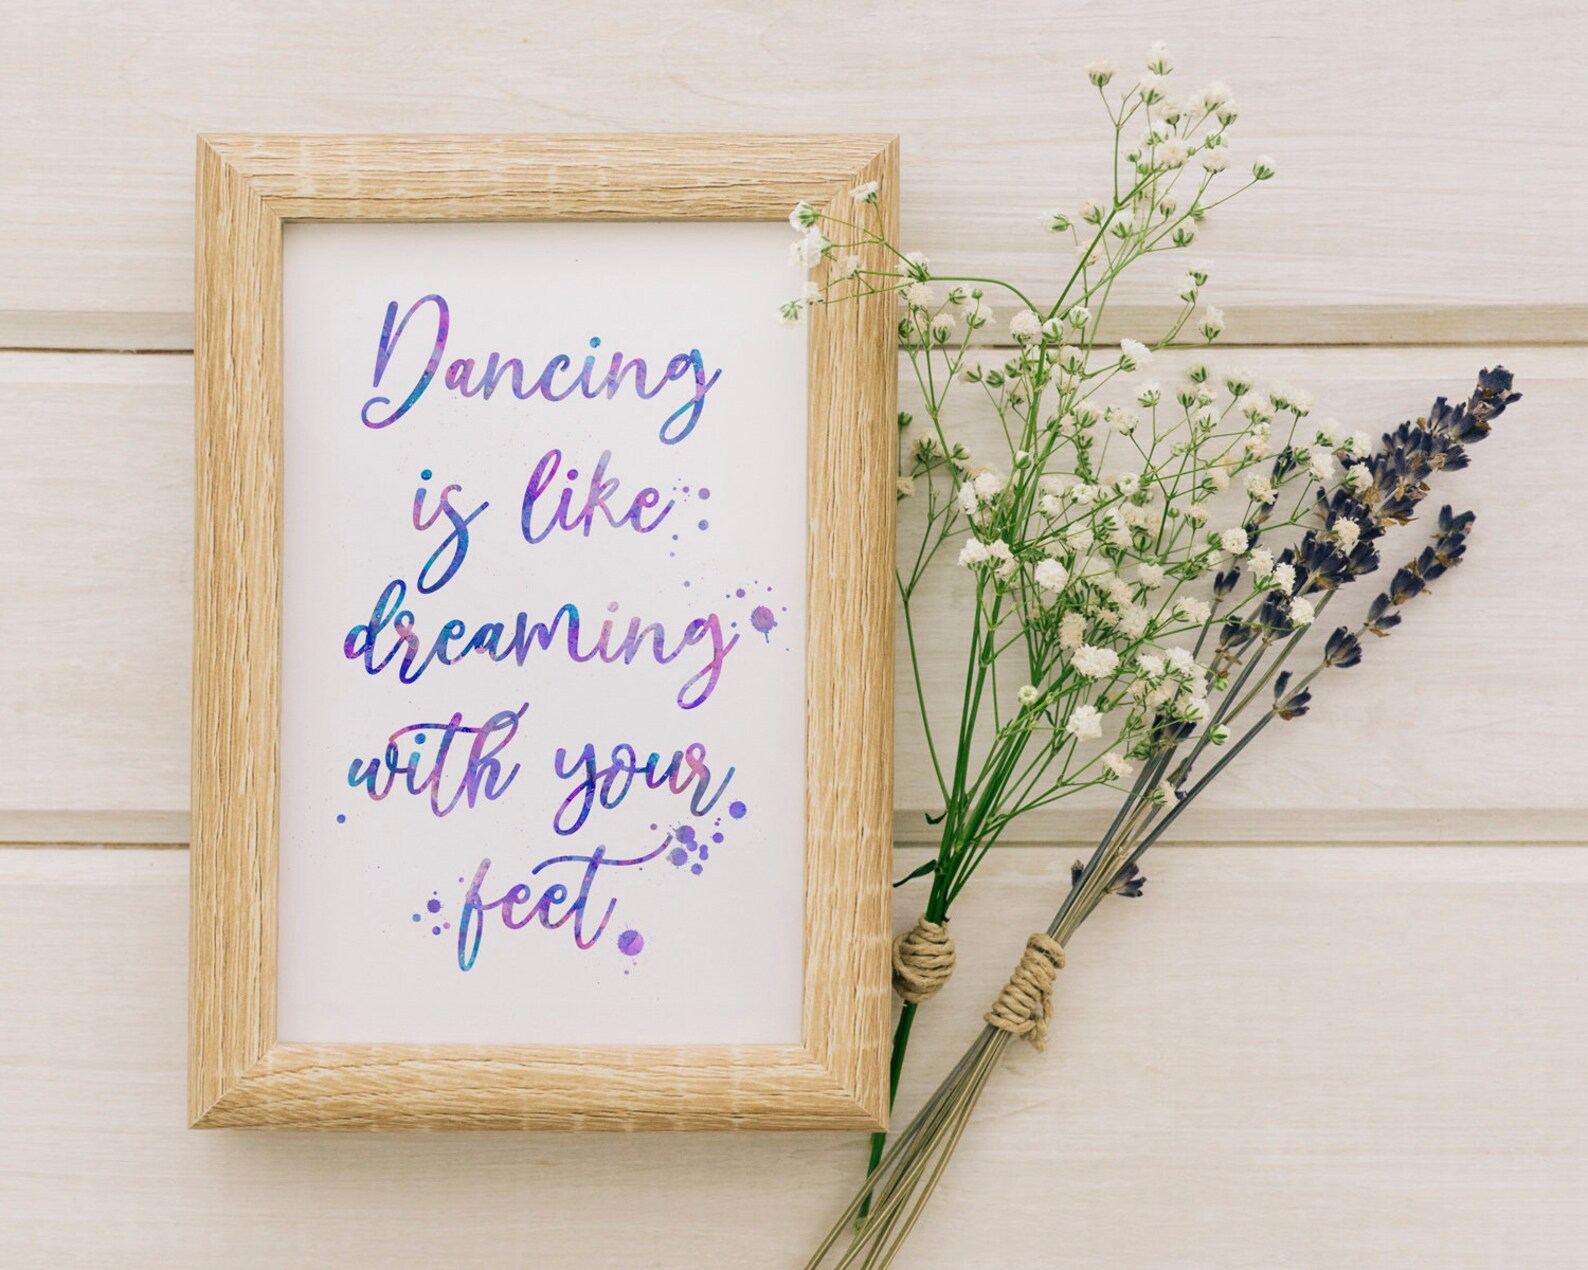 Dancing
is like
dreaming
with your
feet